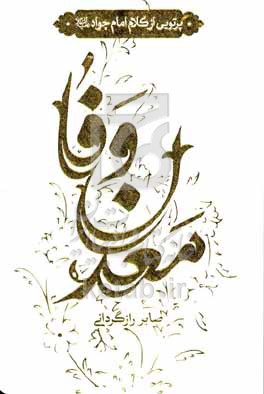 پرتویی از کلام امام جواد علیه‌السلام
معدن وفا
صابر رازگردانی
ketab.ir